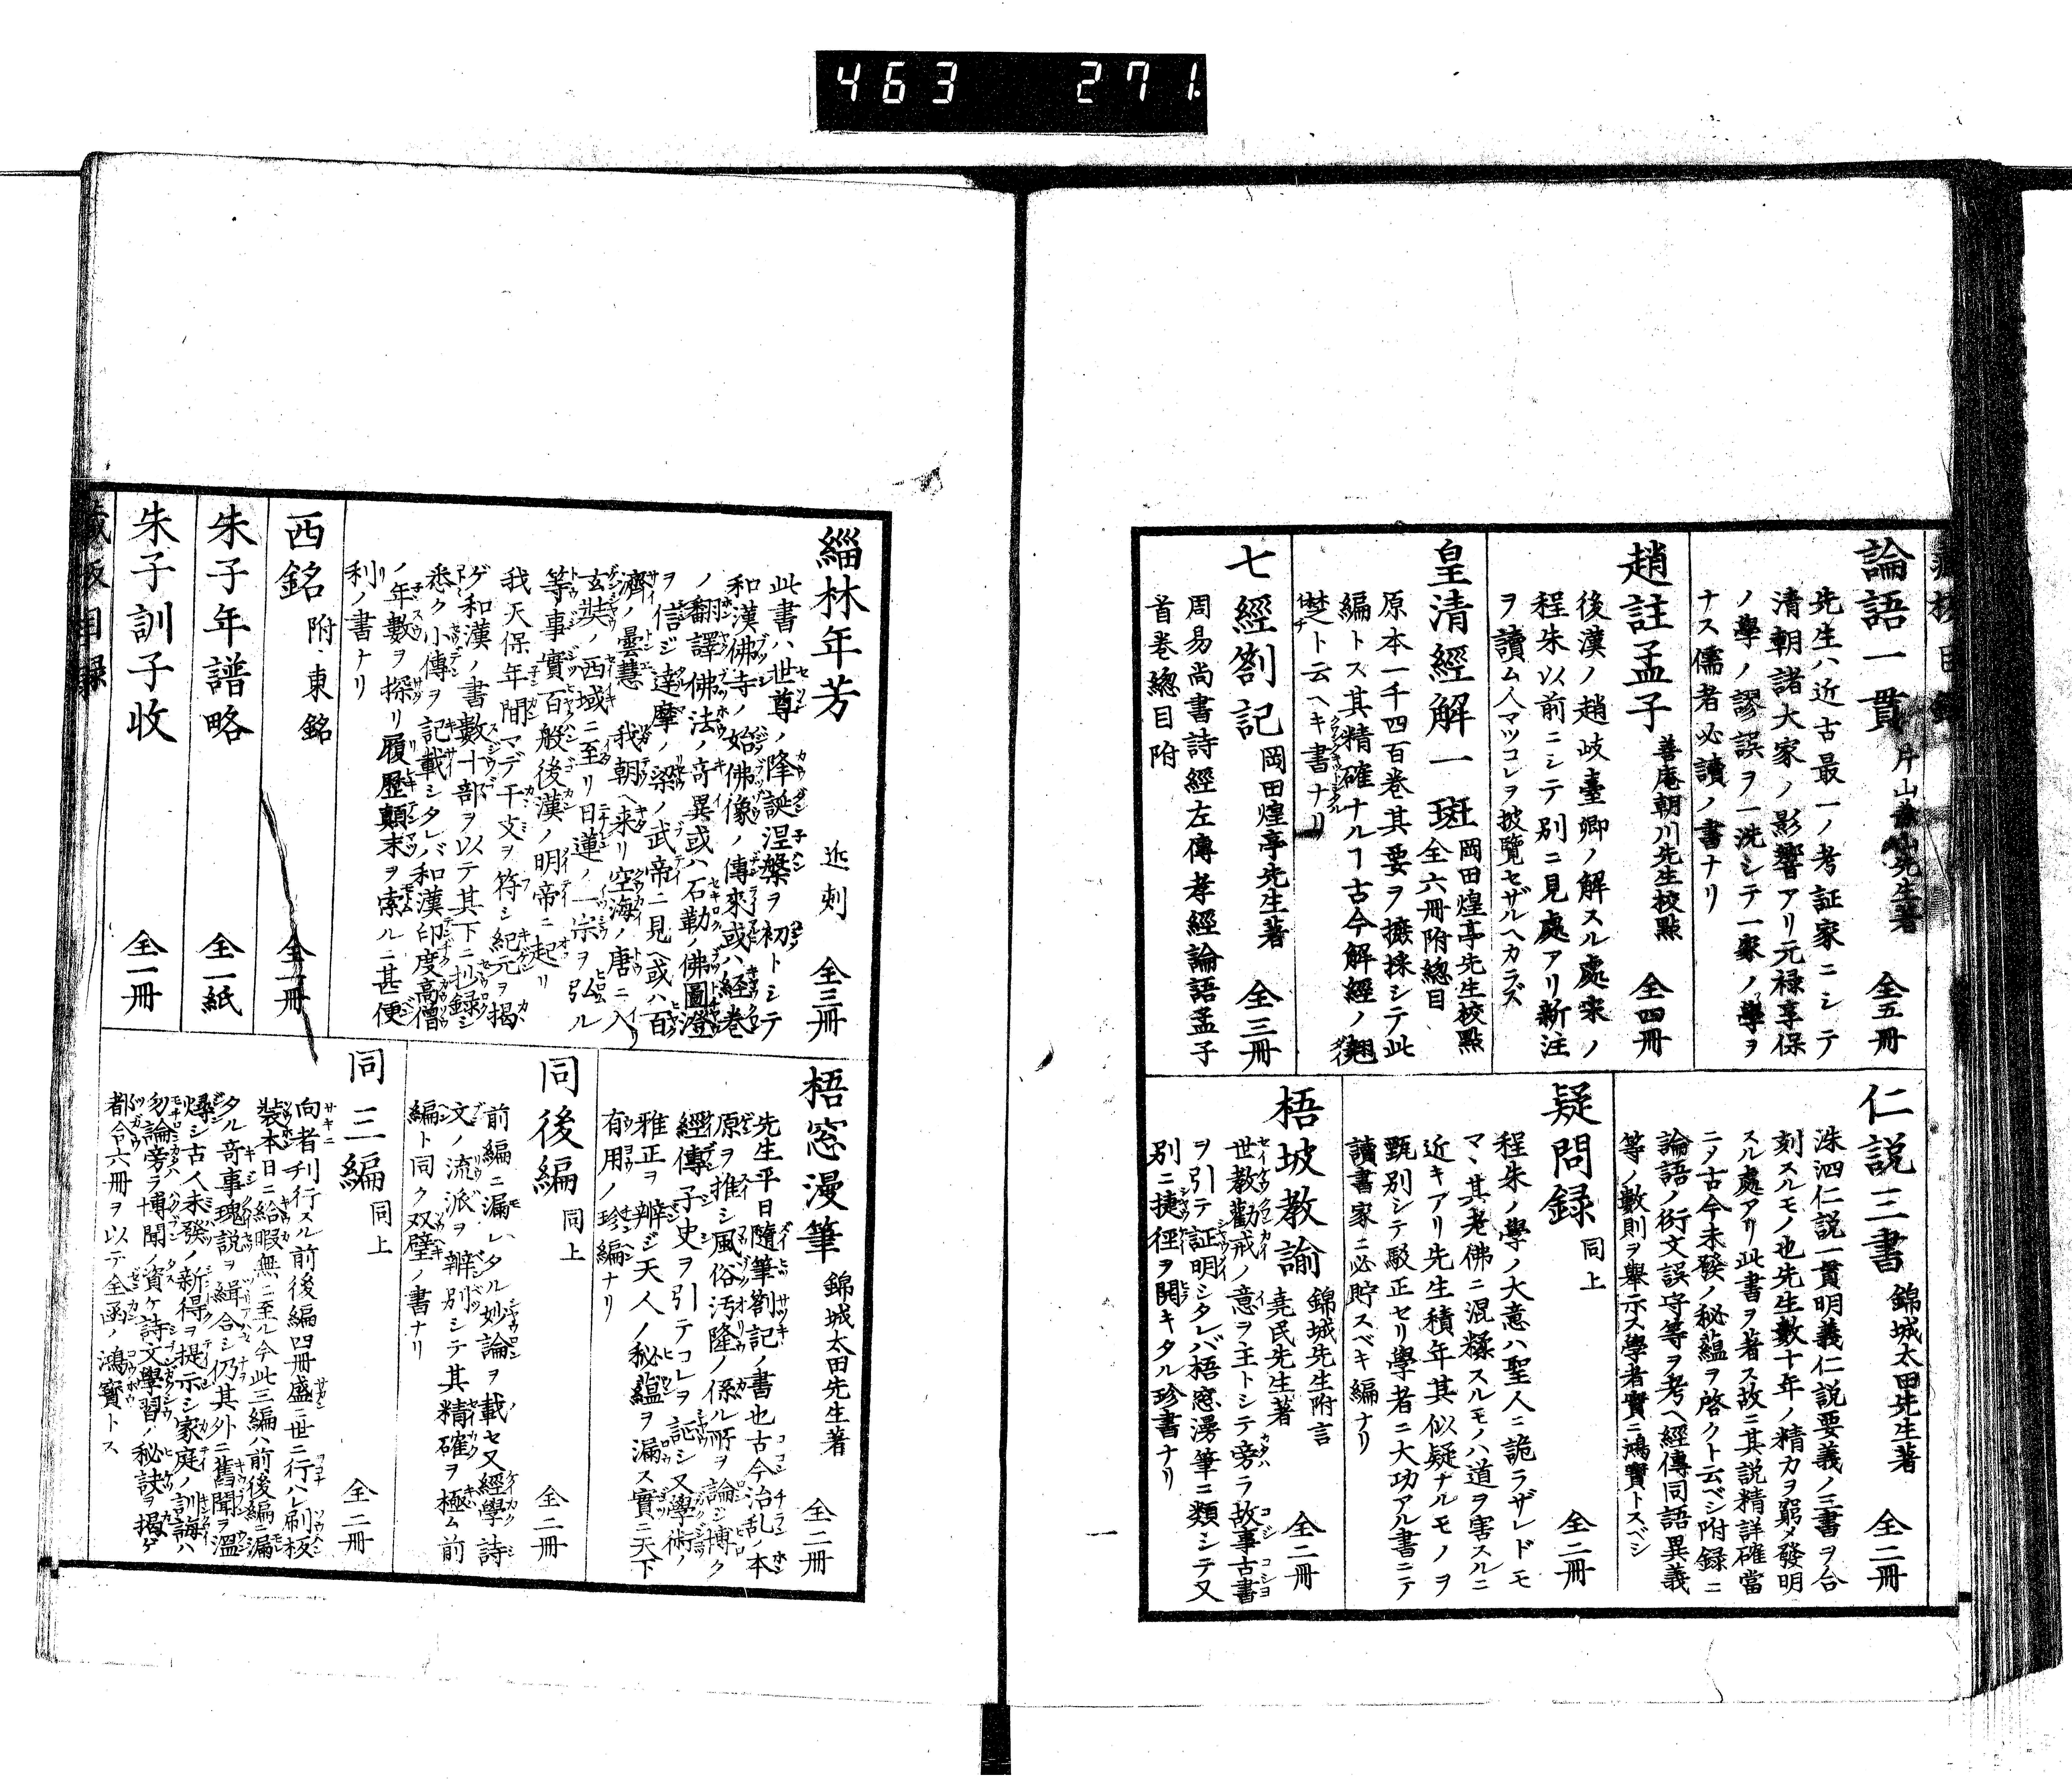 463 271
論語一貫 片山兼山先生著 全五冊
先生ハ近古最一ノ考証家ニシテ
清朝諸大家ノ影響アリ元禄享保
ノ學ノ謬誤ヲ一洗シテ一家ノ學ヲ
ナス儒者必讀ノ書ナリ
趙註孟子 善庵朝川先生校點 全四冊
後漢ノ趙岐臺卿ノ解スル處宋ノ
程朱以前ニシテ別ニ見處アリ新注
ヲ讀ム人マツコレヲ披覽セザルヘカラズ
皇清經解一斑 岡田煌亭先生校點 全六冊附總目
原本一千四百卷其要ヲ摭採シテ此
編トス其精確ナルヿ古今解經ノ翹
楚ト云ヘキ書ナリ
七經劄記 岡田煌亭先生著 全三冊
周易尚書詩經左傳孝經論語孟子
首卷總目附
仁説三書 錦城太田先生著 全二冊
洙泗仁説一貫明義仁説要義ノ三書ヲ合
刻スルモノ也先生數十年ノ精力ヲ窮メ發明
スル處アリ此書ヲ著ス故ニ其説精詳確當
ニメ古今未發ノ秘蘊ヲ啓クト云ベシ附録ニ
論語ノ衍文誤字等ヲ考ヘ經傳同語異義
等ノ數則ヲ舉示ス學者實ニ鴻寶トスベシ
疑問録 同上 全二冊
程朱ノ學ノ大意ハ聖人ニ詭ラザレドモ
マヽ其老佛ニ混糅スルモノハ道ヲ害スルニ
近キアリ先生積年其似疑ナルモノヲ
甄別シテ駁正セリ學者ニ大功アル書ニテ
讀書家ニ必貯スベキ編ナリ
梧坡教諭 錦城先生附言 堯民先生著 全二冊
世教勸戒ノ意ヲ主トシテ旁ラ故事古書
ヲ引テ証明シタレバ梧窓漫筆ニ類シテ又
別ニ捷徑ヲ開キタル珍書ナリ
緇林年芳 近刻 全三冊
此書ハ世尊ノ降誕涅槃ヲ初トシテ
和漢佛寺ノ始佛像ノ傳來或ハ経巻
ノ翻譯佛法ノ奇異或ハ石勒ノ佛圖澄
ヲ信ジ達摩ノ梁ノ武帝ニ見ヘ或ハ百
濟ノ曇慧我朝ヘ来リ空海ノ唐ニ入
玄奘ノ西域ニ至リ日蓮ノ一宗ヲ弘ル
等事實百般後漢ノ明帝ニ起リ
我天保年間マデ干支ヲ符シ紀元ヲ揭
ゲ和漢ノ書數十部ヲ以テ其下ニ抄録シ
悉ク小傳ヲ記載シタレバ和漢印度高僧
ノ年數ヲ探リ履歴顛末ヲ索ルニ甚便
利ノ書ナリ
西銘 附東銘 全一冊
朱子年譜略 全一紙
朱子訓子收 全一冊
梧窓漫筆 錦城太田先生著 全二冊
先生平日隨筆劄記ノ書也古今治乱ノ本
原ヲ推シ風俗汚隆ノ係ル所ヲ論ジ博ク
經傳子史ヲ引テコレヲ証シ又學術ノ
雅正ヲ辨ジ天人ノ秘蘊ヲ漏ス實ニ天下
有用ノ珍編ナリ
同後編 同上 全二冊
前編ニ漏レタル妙論ヲ載セ又經學詩
文ノ流派ヲ辨別シテ其精確ヲ極ム前
編ト同ク双璧ノ書ナリ
同三編 同上 全二冊
向者刊行スル前後編四冊盛ニ世ニ行ハレ刷板
装本日ニ給暇無ニ至ル今此三編ハ前後編ニ漏
タル奇事瑰説ヲ緝合シ仍其外ニ舊聞ヲ溫
燖シ古人未發ノ新得ヲ提示シ家庭ノ訓誨ハ
勿論旁ラ博聞ノ資ケ詩文學習ノ秘訣ヲ揭ゲ
都合六冊ヲ以テ全函ノ鴻寶トス
藏板目録